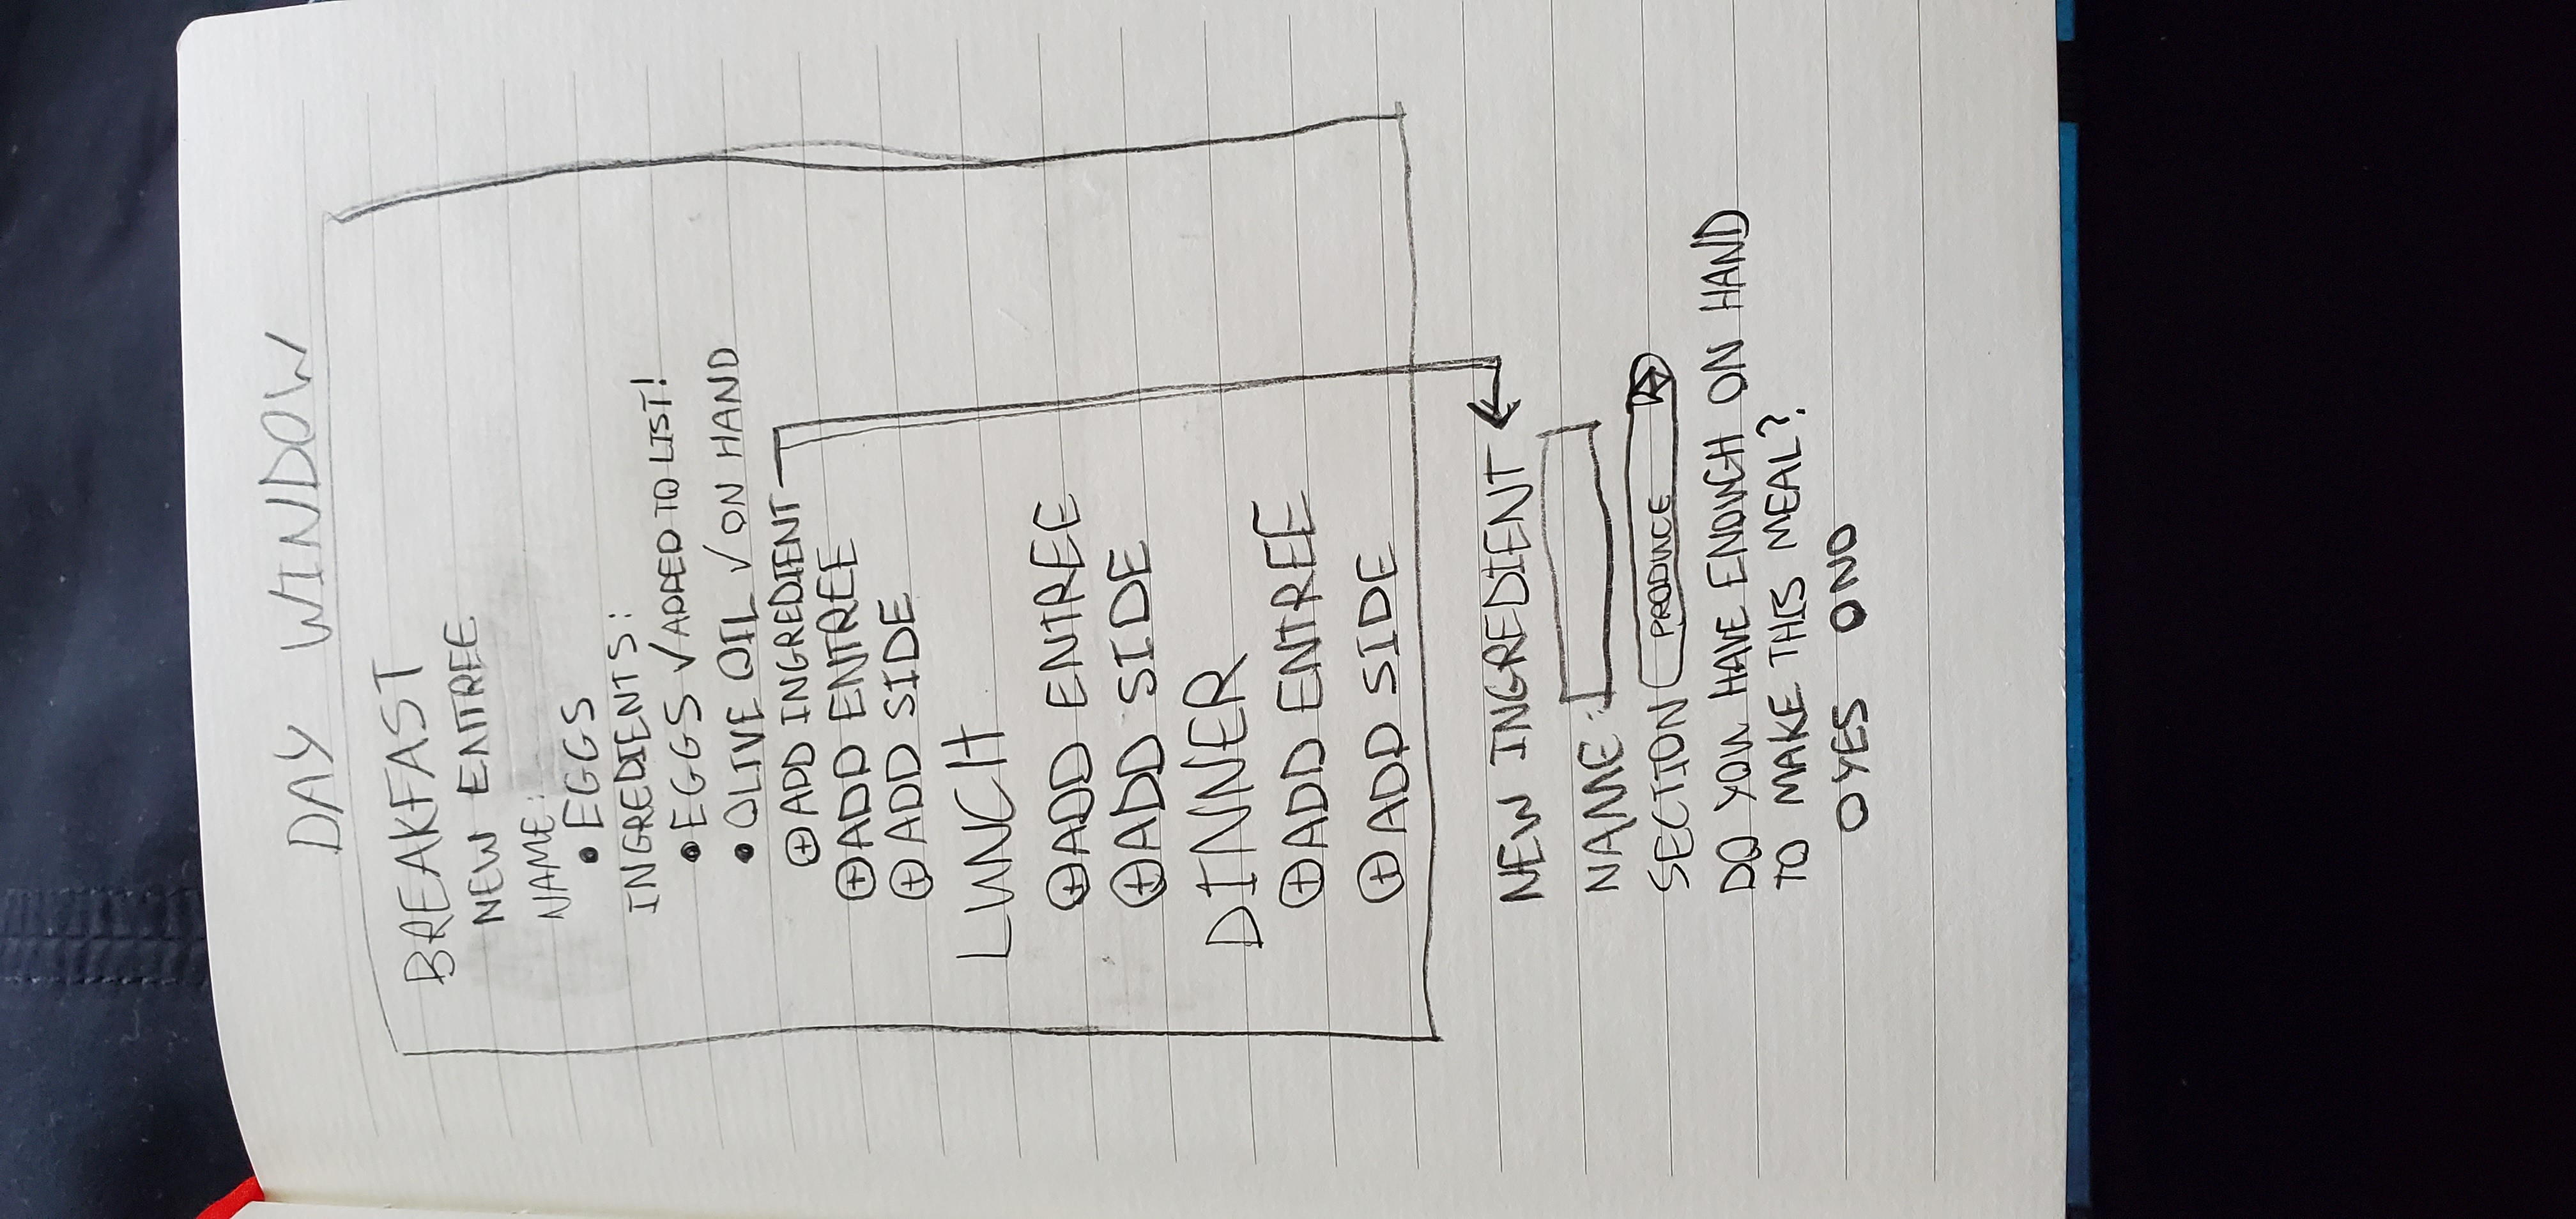 DAY WINDOW
BREAKFAST
NEW ENTREE
NAME:
• EGGS
INGREDIENTS:
• EGGS ✓ ADDED TO LIST!
• OLIVE OIL ✓ ON HAND
⊕ ADD INGREDIENT
⊕ ADD ENTREE
⊕ ADD SIDE
LUNCH
⊕ ADD ENTREE
⊕ ADD SIDE
DINNER
⊕ ADD ENTREE
⊕ ADD SIDE
NEW INGREDIENT
NAME:
SECTION PRODUCE
DO YOU HAVE ENOUGH ON HAND
TO MAKE THIS MEAL?
O YES O NO